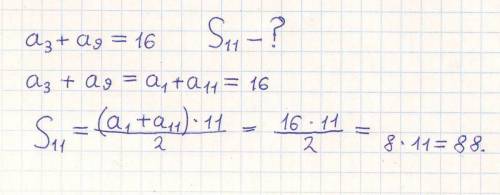 a₃ + a₉ = 16   S₁₁ - ?
a₃ + a₉ = a₁ + a₁₁ = 16
S₁₁ = (a₁ + a₁₁) · 11 / 2 = 16 · 11 / 2 = 8 · 11 = 88.